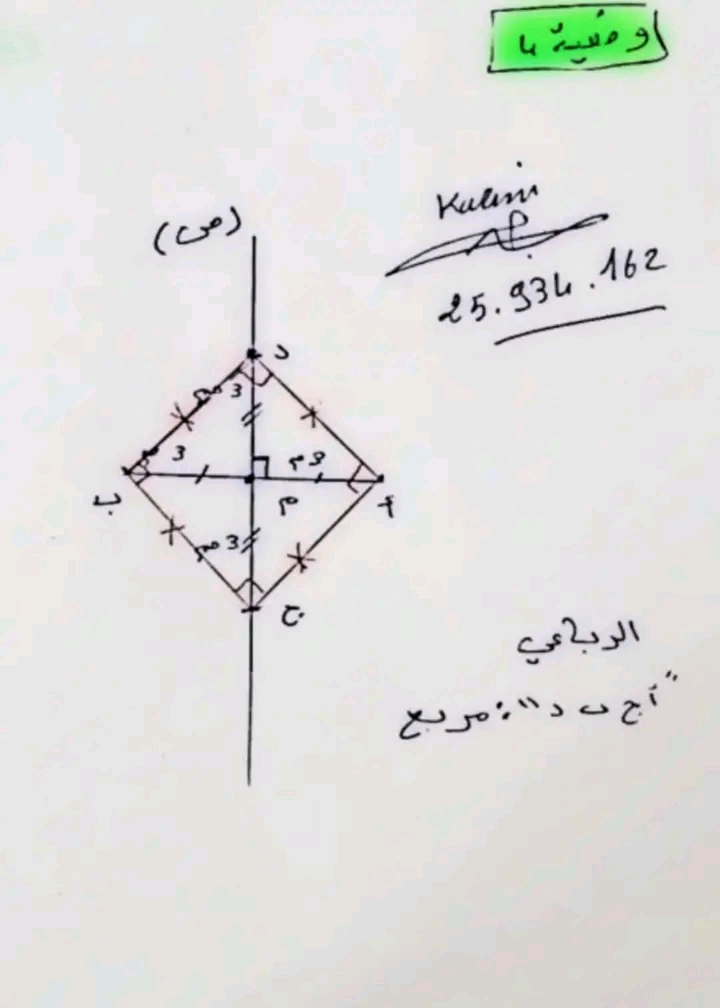 وضعية 4
Kalim
25.934.162
(ص)
د
3 صم
3 صم
3 م
ب
م
أ
3 صم
ج
الرباعي
"أ ج ب د": مربع